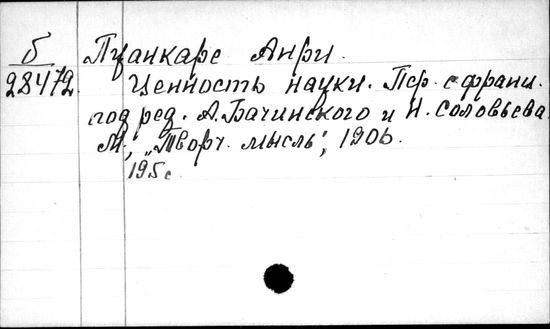 б
28472
Пуанкаре Анри.
Ценность науки. Пер. с франц.
под ред. А. Бачинского и Н. Соловьева
М., „Творч. мысль", 1906.
195 с